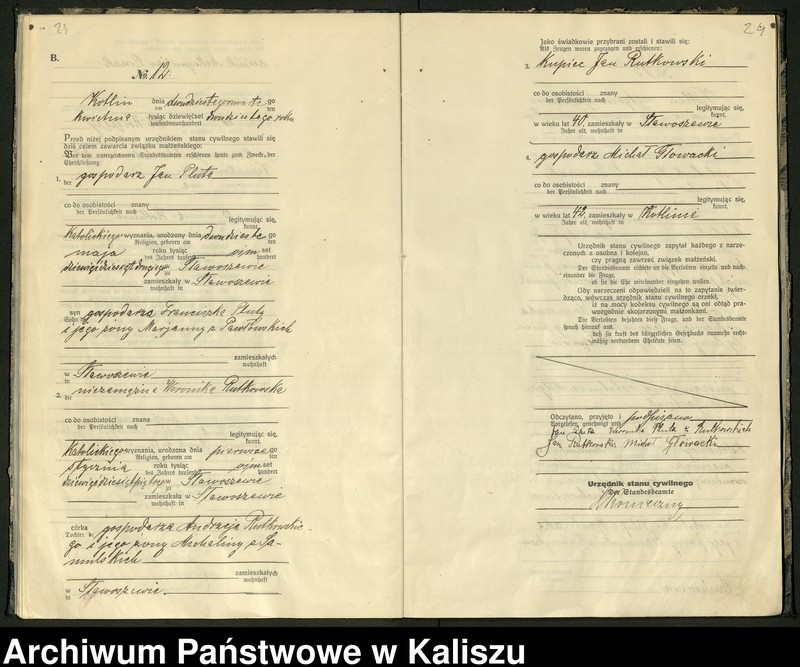 23
B.
№ 12.
Kotlin dnia dwudziestego czwarte go
am ten
kwietnia tysiąc dziewięćset dwudziestego roku
tausendneunhundert
Przed niżej podpisanym urzędnikiem stanu cywilnego stawili się
dziś celem zawarcia związku małżeńskiego:
Vor dem unterzeichneten Standesbeamten erschienen heute zum Zwecke der
Eheschließung:
1. gospodarz Jan Pluta
der
co do osobistości znany
der Persönlichkeit nach
legitymując się,
kannt,
Katolickiego wyznania, urodzony dnia dwudzieste go
Religion, geboren am ten
maja roku tysiąc ośm set
des Jahres tausend hundert
dziewięćdziesiąt drugiego w Sławoszewie
zu
zamieszkały w Sławoszewie
wohnhaft in
syn gospodarza Franciszka Pluty
Sohn de
i jego żony Marjanny z Pawłowskich
zamieszkałych
wohnhaft
w Sławoszewie
in
2. niezamężna Weronika Rutkowska
die
co do osobistości znana
der Persönlichkeit nach
legitymując się,
kannt,
Katolickiego wyznania, urodzona dnia pierwsze go
Religion, geboren am ten
stycznia roku tysiąc ośm set
des Jahres tausend hundert
dziewięćdziesiąt piątego w Sławoszewie
zu
zamieszkała w Sławoszewie
wohnhaft in
córka gospodarza Andrzeja Rutkowskie-
Tochter de
go i jego żony Michaliny z
zamieszkałych
wohnhaft
w Sławoszewie.
in
24
Jako świadkowie przybrani zostali i stawili się:
Als Zeugen waren zugezogen und erschienen:
3. Kupiec Jan Rutkowski
co do osobistości znany
der Persönlichkeit nach
legitymując się,
kannt,
w wieku lat 40, zamieszkały w Sławoszewie
Jahre alt, wohnhaft in
4. gospodarz Michał Głowacki
co do osobistości znany
der Persönlichkeit nach
legitymując się,
kannt,
w wieku lat 42, zamieszkały w Kotlinie
Jahre alt, wohnhaft in
Urzędnik stanu cywilnego zapytał każdego z narze-
czonych z osobna i kolejno,
czy pragną zawrzeć związek małżeński.
Der Standesbeamte richtete an die Verlobten einzeln und nach-
einander die Frage,
ob sie die Ehe miteinander eingehen wollen.
Gdy narzeczeni odpowiedzieli na to zapytanie twier-
dząco, wówczas urzędnik stanu cywilnego orzekł,
iż na mocy kodeksu cywilnego są oni odtąd pra-
womocnie skojarzonymi małżonkami.
Die Verlobten bejahten diese Frage, und der Standesbeamte
sprach hierauf aus,
daß sie kraft des bürgerlichen Gesetzbuchs nunmehr recht-
mäßig verbundene Eheleute seien.
Odczytano, przyjęto i podpisano
Vorgelesen, genehmigt und
Jan Pluta Weronika Pluta z Rutkowskich
Jan Rutkowski Michał Głowacki
Urzędnik stanu cywilnego
Der Standesbeamte
Archiwum Państwowe w Kaliszu